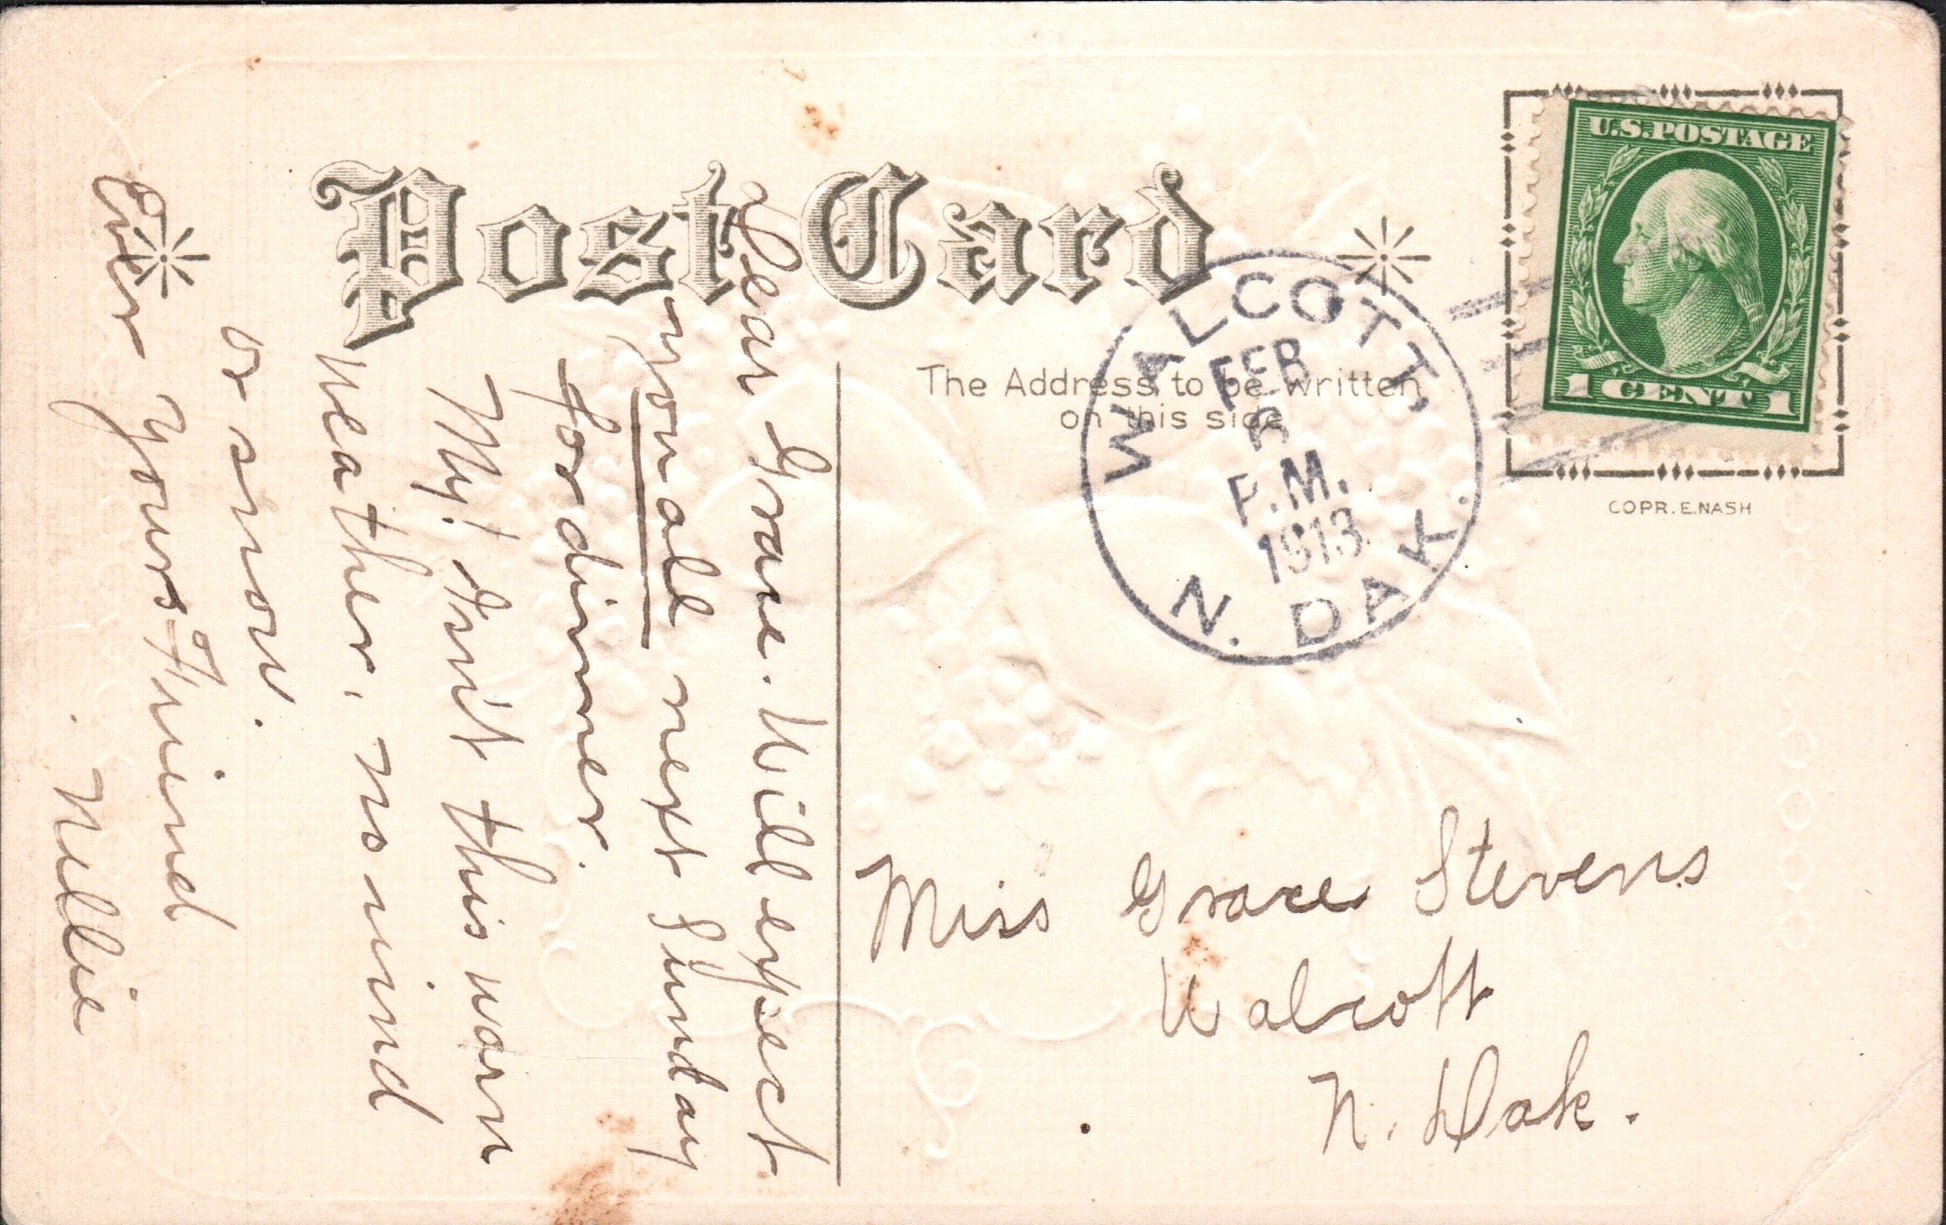 Post Card
U.S. POSTAGE
1 CENT 1
COPR. E. NASH
The Address to be written
on this side
WALCOTT,
FEB
6
P.M.
1913
N. DAK.
Dear Grace. Will expect
you all next Sunday
for dinner.
My! Isn't this warm
weather, no wind
or snow.
Ever Yours Friend
Nellie
Miss Grace Stevens
Walcott
N. Dak.